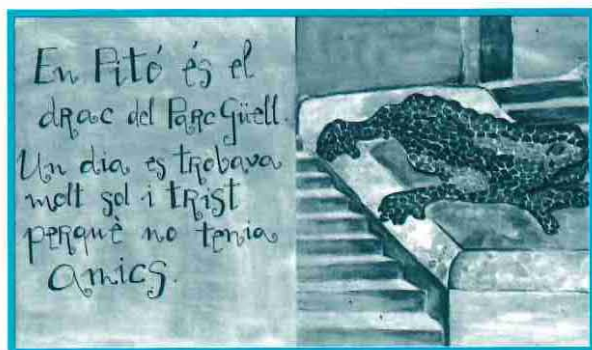 En Pitó és el
drac del Parc Güell.
Un dia es trobava
molt sol i trist
perquè no tenia
amics.